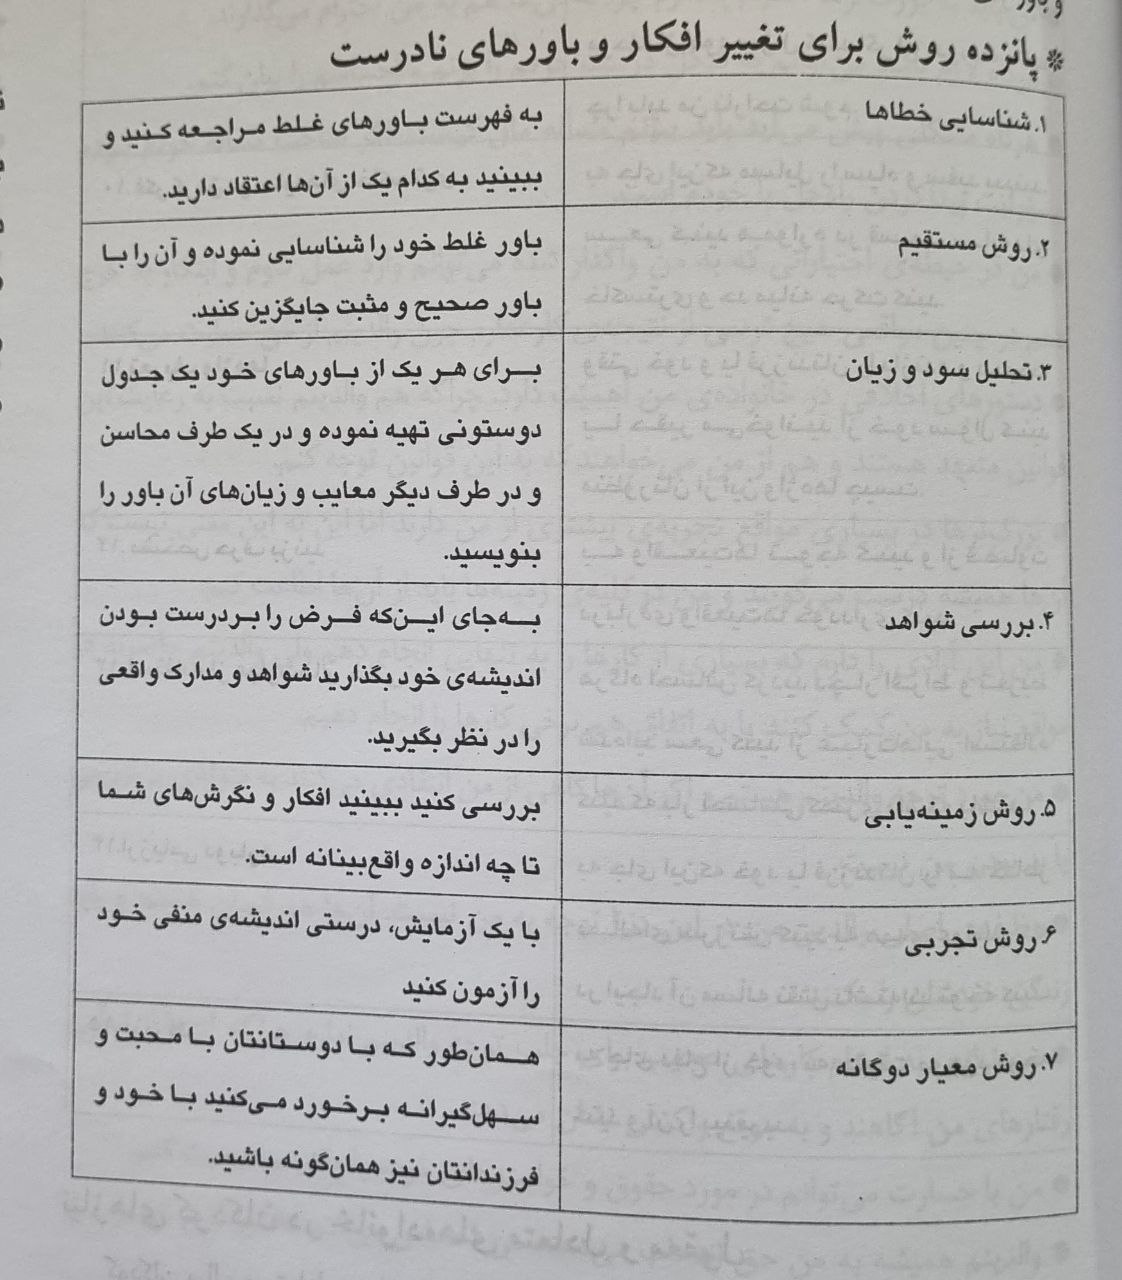 * پانزده روش برای تغییر افکار و باورهای نادرست
۱. شناسایی خطاها
به فهرست باورهای غلط مراجعه کنید و
ببینید به کدام یک از آن‌ها اعتقاد دارید.
۲. روش مستقیم
باور غلط خود را شناسایی نموده و آن را با
باور صحیح و مثبت جایگزین کنید.
۳. تحلیل سود و زیان
برای هر یک از باورهای خود یک جدول
دوستونی تهیه نموده و در یک طرف محاسن
و در طرف دیگر معایب و زیان‌های آن باور را
بنویسید.
۴. بررسی شواهد
به‌جای این‌که فرض را بردرست بودن
اندیشه‌ی خود بگذارید شواهد و مدارک واقعی
را در نظر بگیرید.
۵. روش زمینه‌یابی
بررسی کنید ببینید افکار و نگرش‌های شما
تا چه اندازه واقع‌بینانه است.
۶. روش تجربی
با یک آزمایش، درستی اندیشه‌ی منفی خود
را آزمون کنید
۷. روش معیار دوگانه
همان‌طور که با دوستانتان با محبت و
سهل‌گیرانه برخورد می‌کنید با خود و
فرزندانتان نیز همان‌گونه باشید.